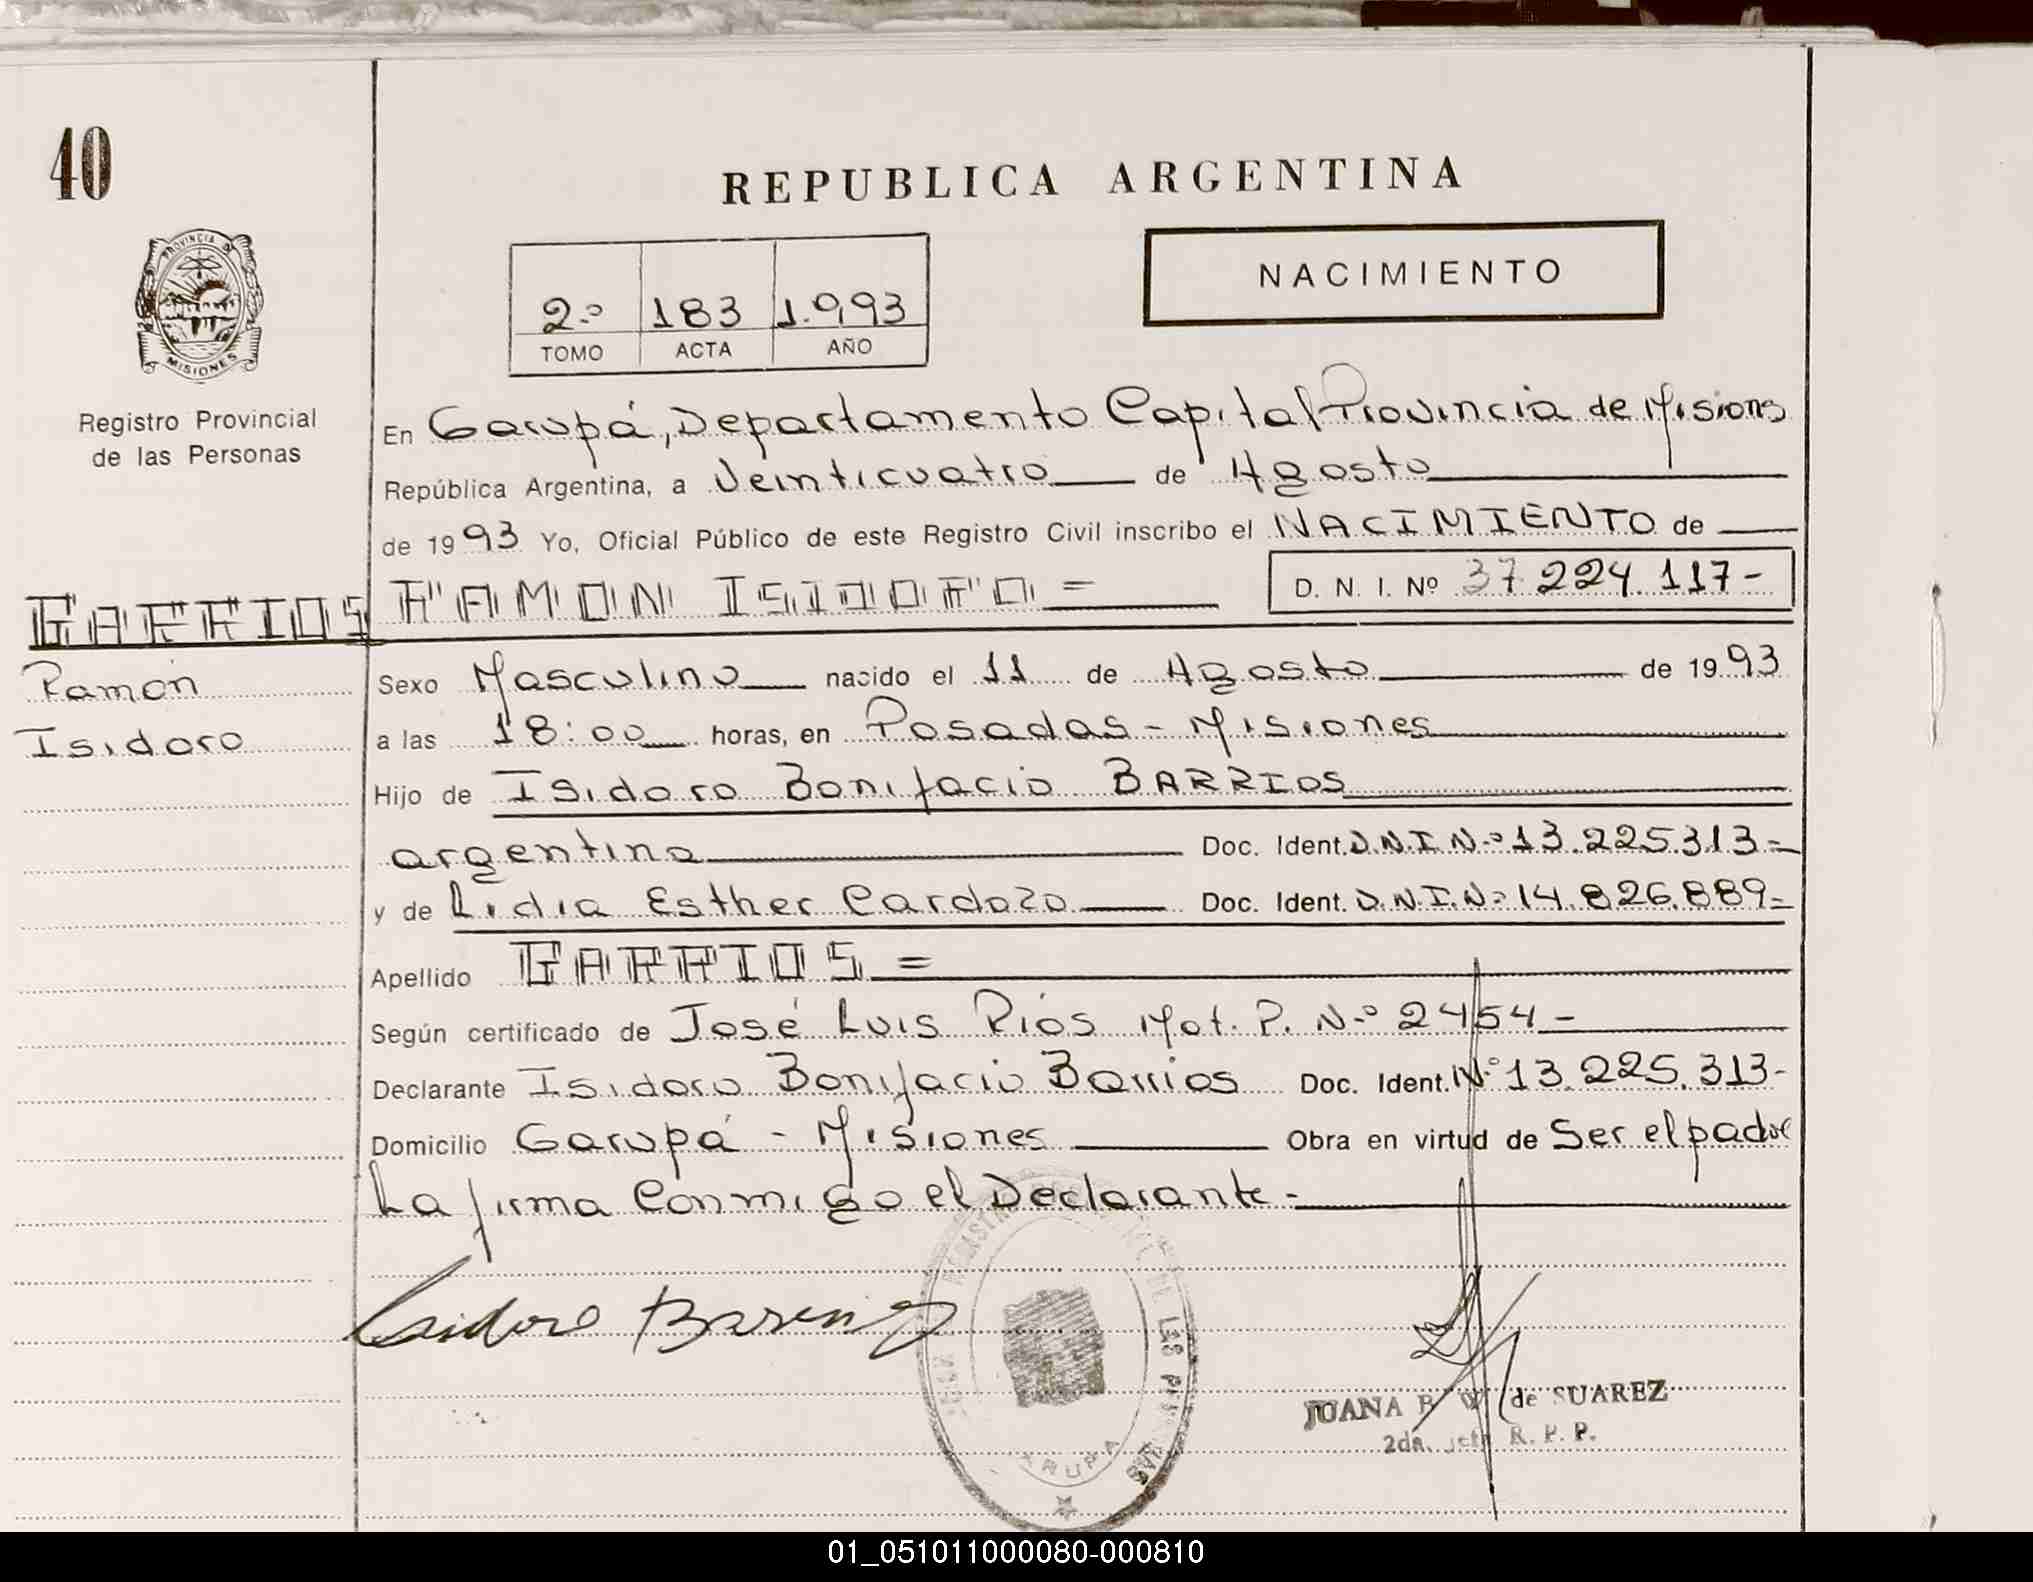 40
REPUBLICA ARGENTINA
PROVINCIA DE
MISIONES
2.º 183 1.993
TOMO ACTA AÑO
NACIMIENTO
Registro Provincial
de las Personas
En Garupá, Departamento Capital Provincia de Misiones
República Argentina, a Veinticuatro de Agosto
de 1993 Yo, Oficial Público de este Registro Civil inscribo el NACIMIENTO de
BARRIOS RAMON ISIDORO = D. N. I. Nº 37.224.117-
Ramón
Isidoro
Sexo Masculino nacido el 11 de Agosto de 1993
a las 18:00 horas, en Posadas - Misiones
Hijo de Isidoro Bonifacio BARRIOS
argentina Doc. Ident. D.N.I.N.º 13.225.313=
y de Lidia Esther Cardozo Doc. Ident. D.N.I.N.º 14.826.889=
Apellido BARRIOS =
Según certificado de José Luis Ríos Mat. P. N.º 2454-
Declarante Isidoro Bonifacio Barrios Doc. Ident. Nº 13.225.313-
Domicilio Garupá - Misiones Obra en virtud de Ser el padre
La firma Conmigo el Declarante-
Isidoro Barrios
DE LAS PERSONAS
JUANA B. W. de SUAREZ
2da. Jefa R. P. P.
01_051011000080-000810